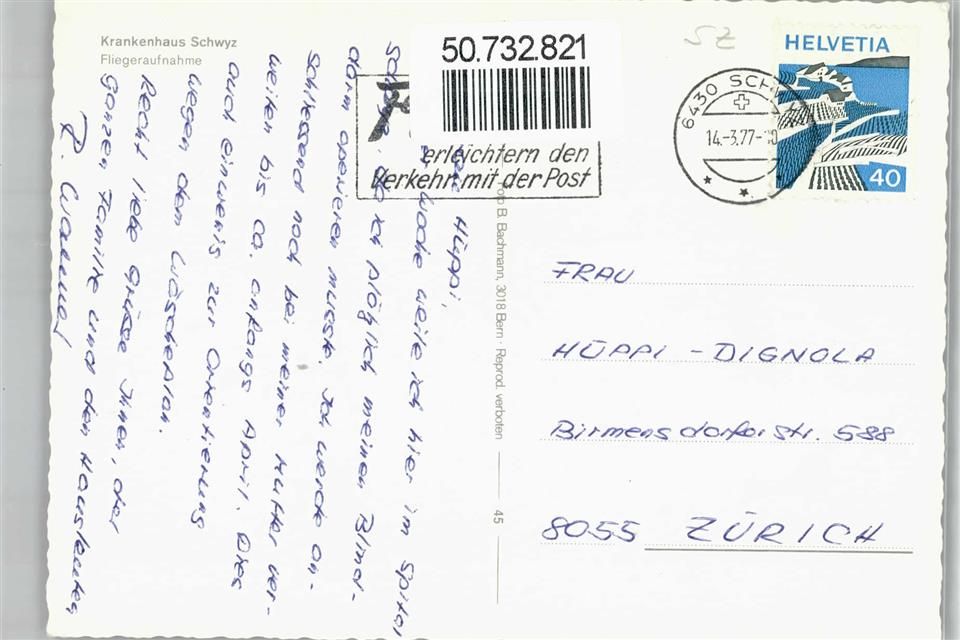 Krankenhaus Schwyz
Fliegeraufnahme
50.732.821
erleichtern den
Verkehr mit der Post
SZ
6430 SCH
14.-3.77-
HELVETIA
40
Hüppi,
Woche weile ich hier im Spital
Schwyz, da ich plötzlich meinen Blind-
darm operieren musste. Ich werde an-
schliessend noch bei meiner Mutter ver-
weilen bis ca. anfangs April. Dies
auch einwenig zur Orientierung
wegen dem Wäscheplan.
Recht liebe Grüsse Ihnen, der
ganzen Familie und den Hausleuten
R.
Foto B. Bachmann, 3018 Bern - Reprod. verboten
45
FRAU
HÜPPI - DIGNOLA
Birmensdorferstr. 588
8055 ZÜRICH